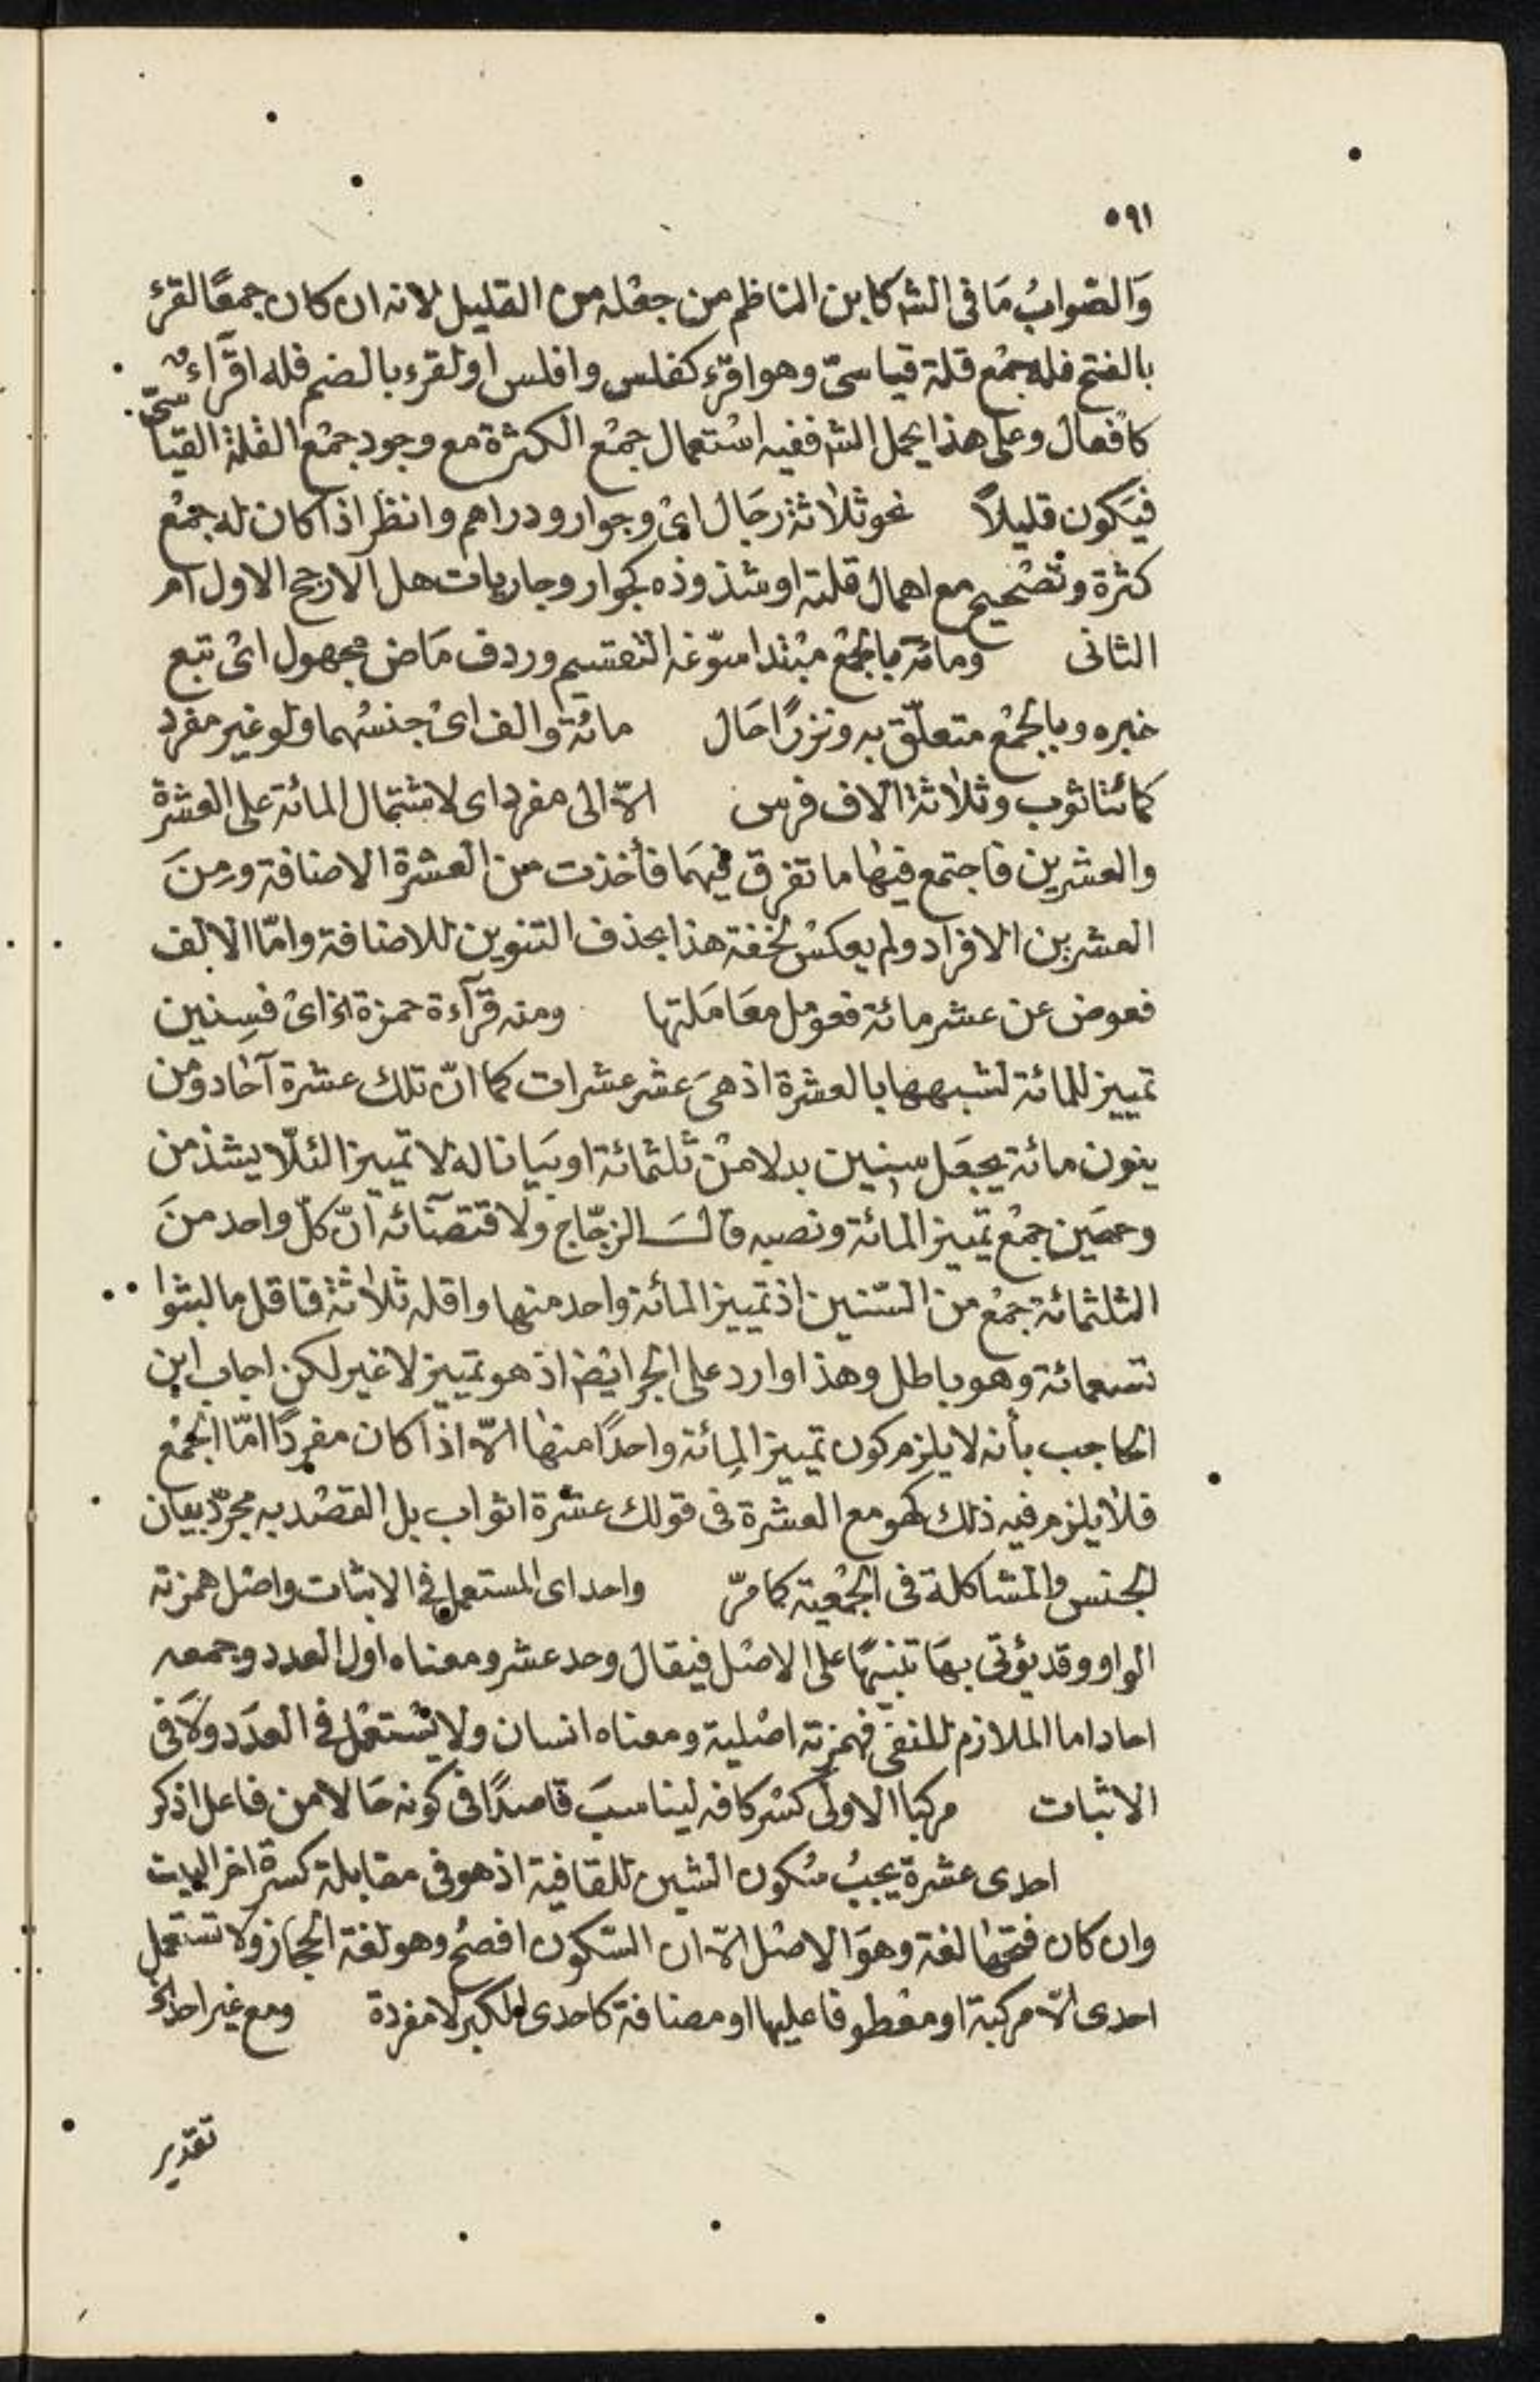 ٥٩١
وَالصّوابُ مَا فى الشه كابن الناظم من جعْله من القليل لانه ان كان جمعًا لقرء
بالفتح فله جمْع قلة قياسىّ وهو اقرّء كفلس وافلس او لقرء بالضم فله اقرآء
كافعال وعلى هذا يحمل الشه ففيه استعمال جمْع الكثرة مع وجود جمْع القلة القياسىّ
فيَكون قليلاً نحو ثلاثة رجَال اىْ وجوار ودراهم وانظر اذا كان له جمْع
كثرة وتصْحيح مع اهمال قلته او شذوذه كجوار وجاريات هل الارجح الاول ام
الثانى ومائة بالجمْع مبْتدا سوّغه التقسيم وردف مَاض مجهول اىْ تبع
خبره وبالجمْع متعلّق به ونزرًا حَال مائة والف اىْ جنسُهما ولو غير مفرد
كمائتا ثوب وثلاثة الاف فرس الاّ الى مفرد اى لاشتمال المائة على العشرة
والعشرين فاجتمع فيها ما تفرق فيهَما فأخذت من العشرة الاضافة ومِنَ
العشرين الافراد ولم يعكسْ لخفة هذا بحذف التنوين للاضافة وامّا الالف
فعوض عن عشر مائة فعومل معَامَلتها ومنه قرآءة حمزة الخ اىْ فسِنين
تمييز للمائة لشبهها بالعشرة اذ هىَ عشر عشرات كما انّ تلك عشرة آحاد ومن
ينون مائة يجعَل سنين بدلا منْ ثلثمائة او بيَانا له لا تمْييزا لئلاّ يشذ من
وجهَين جمْع تمْييز المائة ونصبه قالَ الزجّاج ولاقتضآئه انّ كلّ واحد منَ
الثلثمائة جمْع من السّنين اذ تمْييز المائة واحد منها واقله ثلاثة فاقل ما لبثوا
تسعمائة وهو باطل وهذا وارد على الجر ايْضا اذ هو تمييز لا غير لكن اجاب ابن
الحاجب بأنه لا يلزم كون تمْييز المِائة واحدًا منها الاّ اذا كان مفردًا امّا الجمْع
فلا يلزم فيه ذلك كهو مع العشرة فى قولك عشرة اثواب بل القصْد به مجرّد بيان
الجنس والمشاكلة فى الجمْعية كما مرّ واحد اى المستعمل فى الاثبات واصْل همزته
الواو وقد يؤتى بهَا تنبيهًا على الاصْل فيقال وحد عشر ومعناه اول العدد وجمعه
احاد اما الملازم للنفىِ فهمزته اصْلية ومعناه انسان ولا يسْتعْمل فى العدَد ولَا فى
الاثبات مركبا الاولى كسْر كافه ليناسبَ قاصدًا فى كونه حَالا من فاعل اذكر
احدى عشرة يجبُ سُكون الشين للقافية اذ هو فى مقابلة كسرة اخر البيت
وان كان فتحها لغة وهوَ الاصْل الاّ ان السّكون افصحُ وهو لغة الحجاز ولا تستعمل
احدى الاّ مركبة او معْطوفا عليها او مضافة كاحدى الكبر لا مفردة ومع غير احد الخ
تقدير